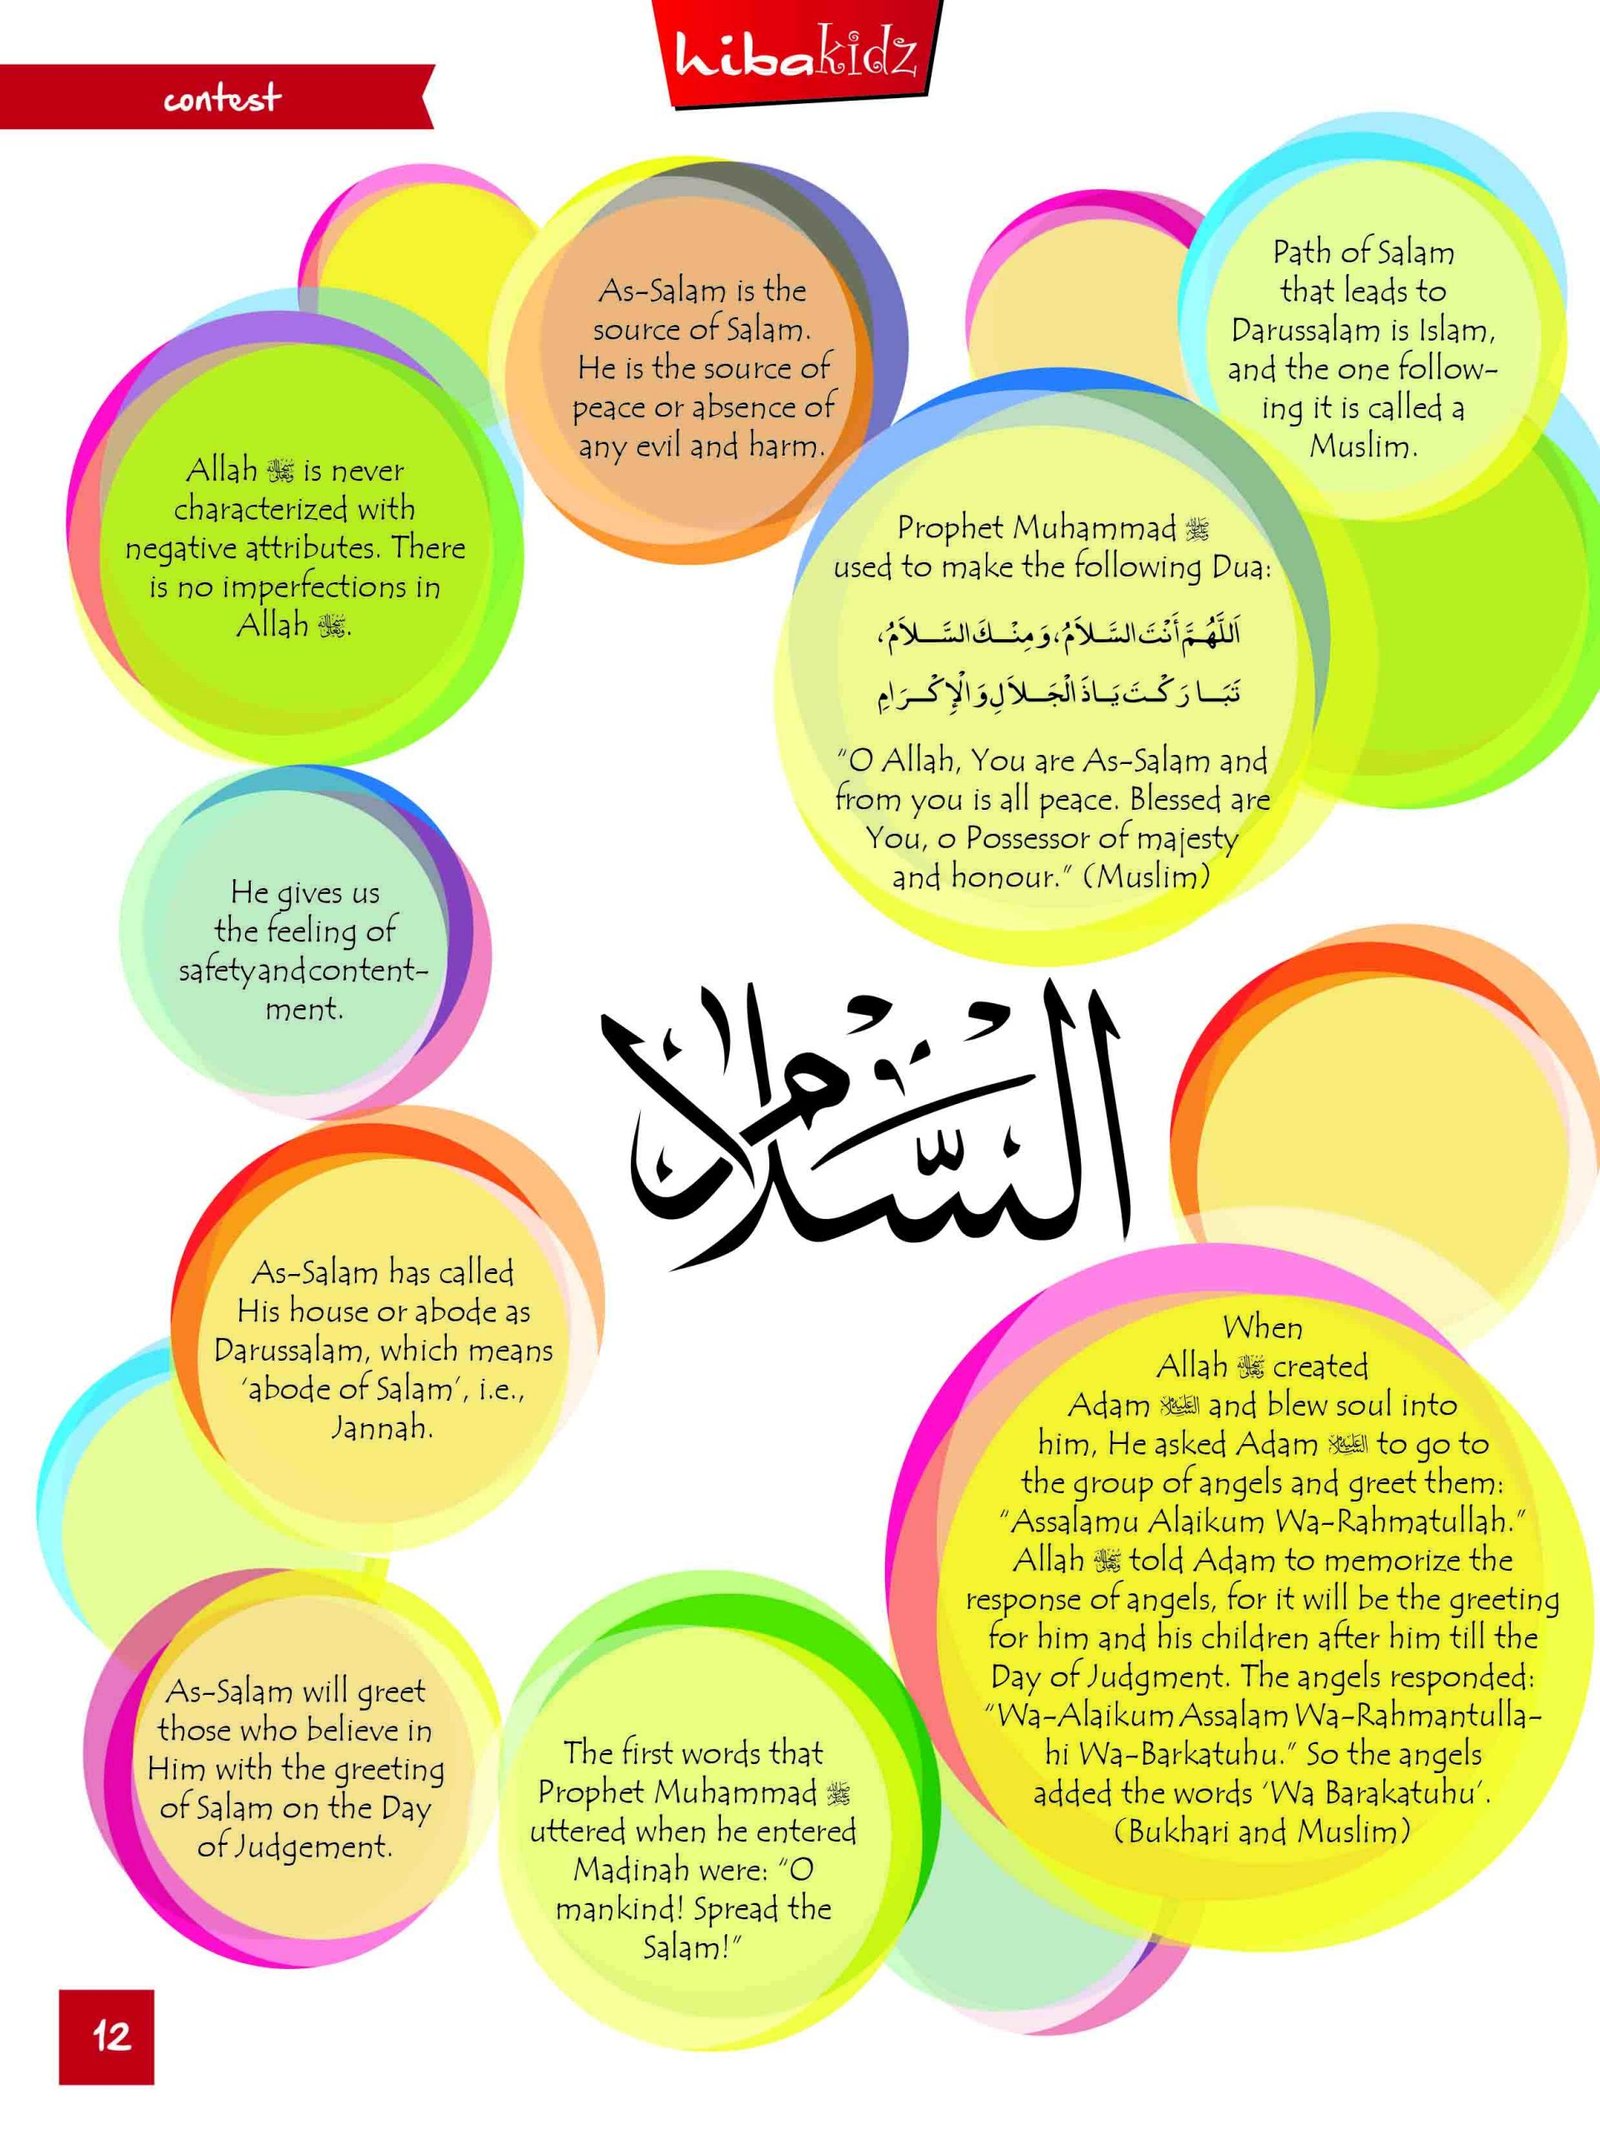 hibakidz
contest
As-Salam is the
source of Salam.
He is the source of
peace or absence of
any evil and harm.
Path of Salam
that leads to
Darussalam is Islam,
and the one follow-
ing it is called a
Muslim.
Allah ﷻ is never
characterized with
negative attributes. There
is no imperfections in
Allah ﷻ.
Prophet Muhammad ﷺ
used to make the following Dua:
اَللَّهُمَّ أَنْتَ السَّلاَمُ، وَمِنْكَ السَّلاَمُ،
تَبَارَكْتَ يَاذَ الْجَلاَلِ وَالْإِكْرَامِ
"O Allah, You are As-Salam and
from you is all peace. Blessed are
You, o Possessor of majesty
and honour." (Muslim)
He gives us
the feeling of
safety and content-
ment.
السَّلَامُ
As-Salam has called
His house or abode as
Darussalam, which means
'abode of Salam', i.e.,
Jannah.
When
Allah ﷻ created
Adam عليه السلام and blew soul into
him, He asked Adam عليه السلام to go to
the group of angels and greet them:
"Assalamu Alaikum Wa-Rahmatullah."
Allah ﷻ told Adam to memorize the
response of angels, for it will be the greeting
for him and his children after him till the
Day of Judgment. The angels responded:
"Wa-Alaikum Assalam Wa-Rahmantulla-
hi Wa-Barkatuhu." So the angels
added the words 'Wa Barakatuhu'.
(Bukhari and Muslim)
As-Salam will greet
those who believe in
Him with the greeting
of Salam on the Day
of Judgement.
The first words that
Prophet Muhammad ﷺ
uttered when he entered
Madinah were: "O
mankind! Spread the
Salam!"
12